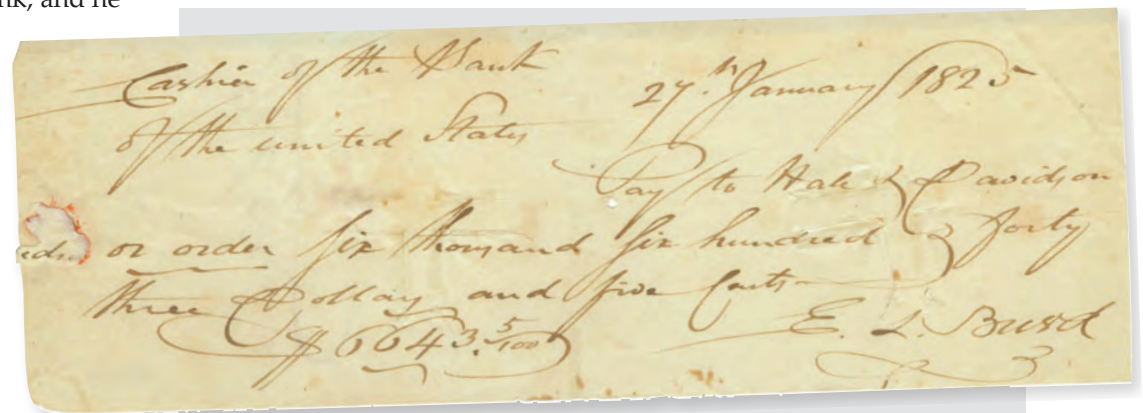 nk, and he
Cashier of the Bank 27.th January 1825
of the united States
Pay to Hale & Davidson
or order six thousand six hundred & forty
three Dollars and five Cents
$6643.5/100 E. L. Burd